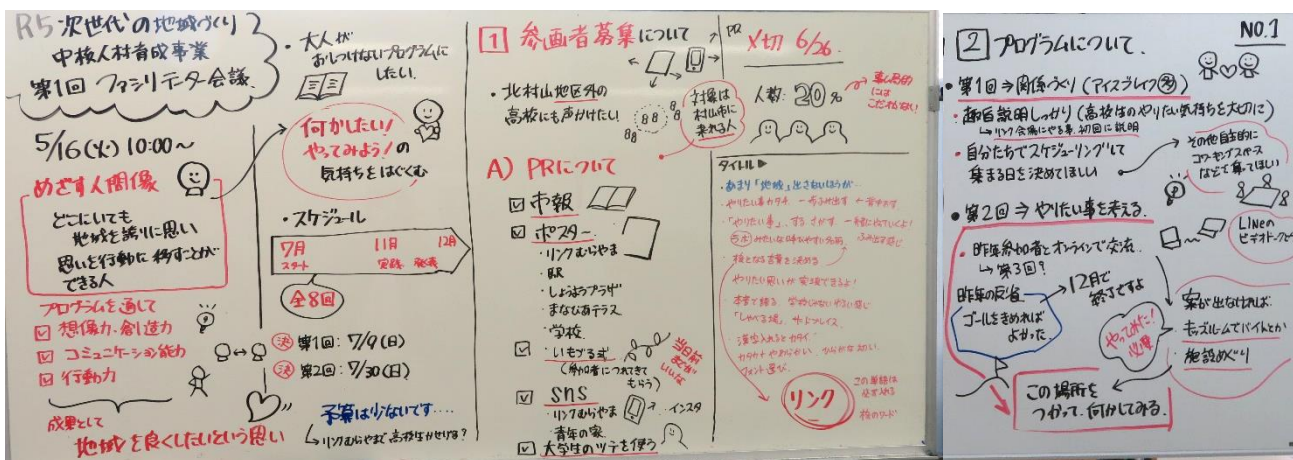 R5 次世代の地域づくり
中核人材育成事業
第1回 ファシリテーター会議
5/16(火) 10:00〜
めざす人間像
どこにいても
地域を誇りに思い
思いを行動に移すことが
できる人
プログラムを通して
想像力・創造力
コミュニケーション能力
行動力
成果として
地域を良くしたいという思い
・大人が
おしつけないプログラムに
したい
何かしたい!
やってみよう!の
気持ちをはぐくむ
・スケジュール
7月 11月 12月
スタート 実践 発表
全8回
決 第1回: 7/9(日)
決 第2回: 7/30(日)
予算は少ないです....
リンクむらやまで高校生かせげる?
1 参画者募集について
・北村山地区外の
高校にも声かけたい
対象は
村山市に
来れる人
A) PRについて
市報
ポスター
・リンクむらやま
・駅
・しょうようプラザ
・まなびあテラス
・学校
いもづる式
(参加者につれてきて
もらう)
当日前
までが
いいな
SNS
・リンクむらやま
インスタ
・青年の家
大学生のツテを使う
PR
〆切 6/26.
人数: 20%
こだわらない!
タイトル
・あまり「地域」出さないほうが..
・核となる言葉を決める
・やりたい思いが実現できるよ!
「しゃべる場」 サードプレイス
・漢字入れるとカタイ
カタカナやわらかい ひらがな幼い
フォント選び
リンク
この単語は
必ず入れる
核のワード
2 プログラムについて.
NO.1
・第1回⇒関係づくり(アイスブレイク多)
・趣旨説明しっかり(高校生のやりたい気持ちを大切に)
・自分たちでスケジューリングして
集まる日を決めてほしい
その他自主的に
コワーキングスペース
などで集ってほしい
・第2回⇒やりたい事を考える
LINEの
ビデオトークとか
・昨年参加者とオンラインで交流
第3回?
昨年の反省
ゴールをきめれば
よかった
12月で
終了ですよ
やってみた!
必要
案が出なければ
キッズルームでバイトとか
施設めぐり
この場所を
つかって、何かしてみる.